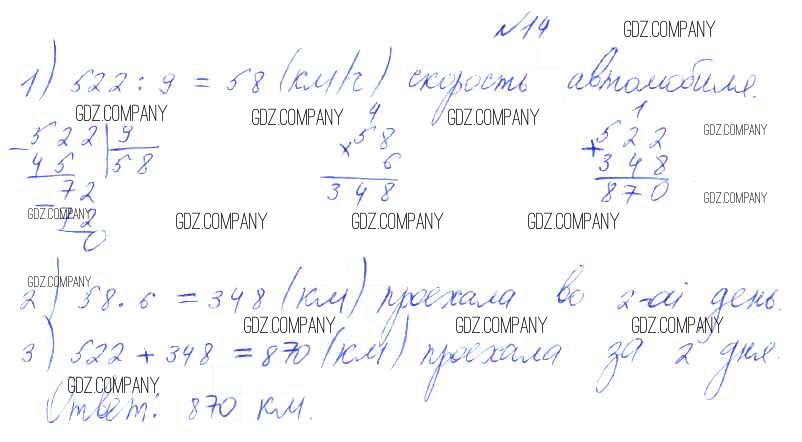 №14 GDZ.COMPANY
1) 522 : 9 = 58 (км/ч) скорость автомобиля.
GDZ.COMPANY GDZ.COMPANY GDZ.COMPANY
4 1
- 522 | 9 × 58 + 522
45 58 6 348
72 348 870 GDZ.COMPANY
- 72
GDZ.COMPANY GDZ.COMPANY GDZ.COMPANY GDZ.COMPANY
0
GDZ.COMPANY
2) 58 · 6 = 348 (км) проехала во 2-ой день.
GDZ.COMPANY GDZ.COMPANY GDZ.COMPANY
3) 522 + 348 = 870 (км) проехала за 2 дня.
GDZ.COMPANY
Ответ: 870 км.